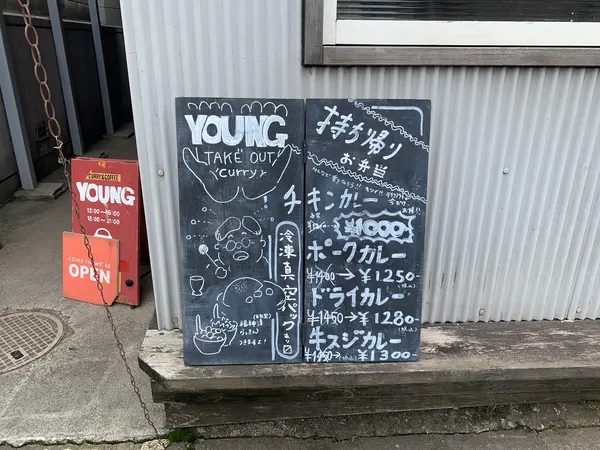 CURRY & COFFEE
YOUNG
12:00~15:00
18:00~21:00
COME IN WE'RE
OPEN
YOUNG
TAKE OUT
curry
冷凍真空パックあり
福神漬
らっきょ
つきますよ!
持ち帰り
お弁当
チキンカレー
¥1000
ポークカレー
¥1400→¥1250
ドライカレー
¥1450→¥1280
牛スジカレー
¥1450→¥1300